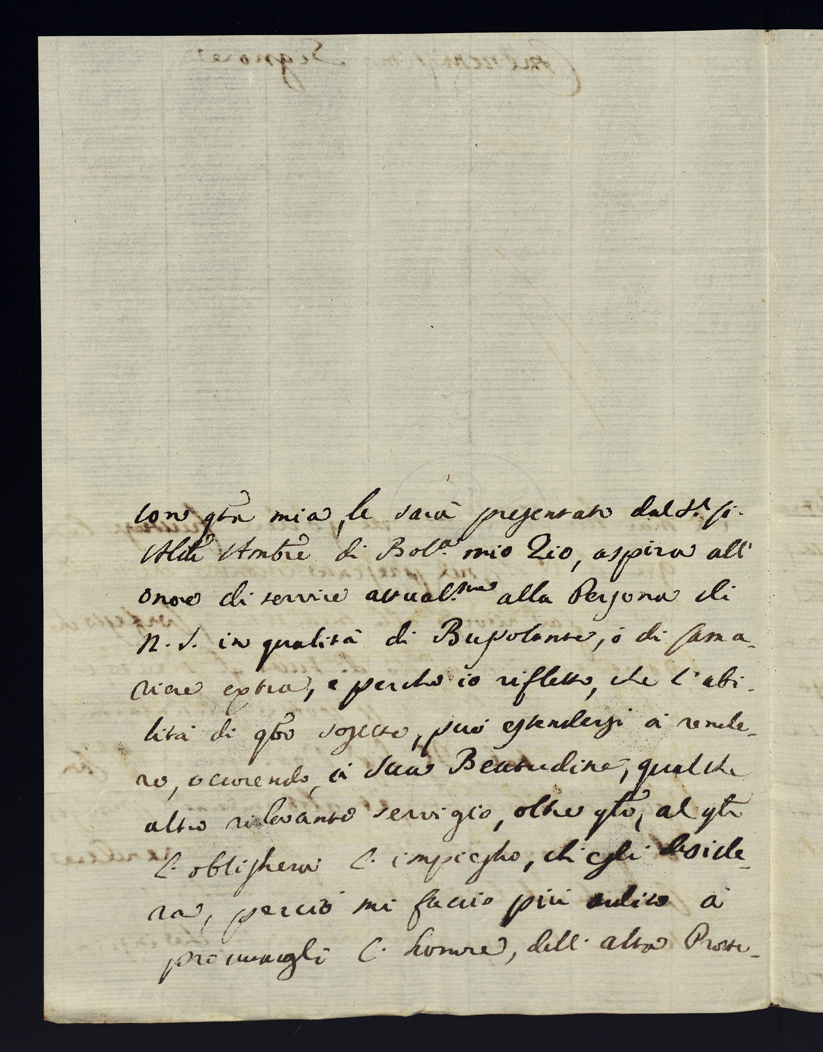 con qta mia, le sarà presentato dal Sr.
di Bola. mio Zio, aspira all'
onore di servire attualme. alla Persona di
N. S. in qualità di Bussolante, ò di Came-
riere extra, e perche io rifletto, che l'abi-
lità di qto sogetto, può estendersi à rende-
re, ocorendo, à Sua Beatitudine, qualche
altro rilevante servigio, oltre qto, al qle
l'oblighera l'impiegho, ch'egli deside-
ra, perciò mi faccio più ardito à
l'honore, dell'alta Prote-